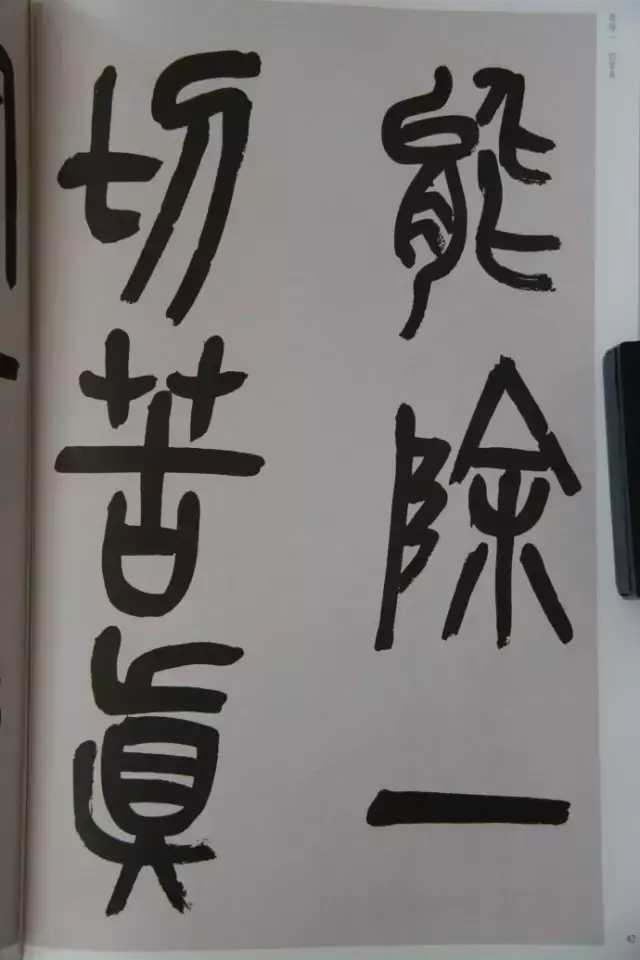 能除一
切苦眞
42